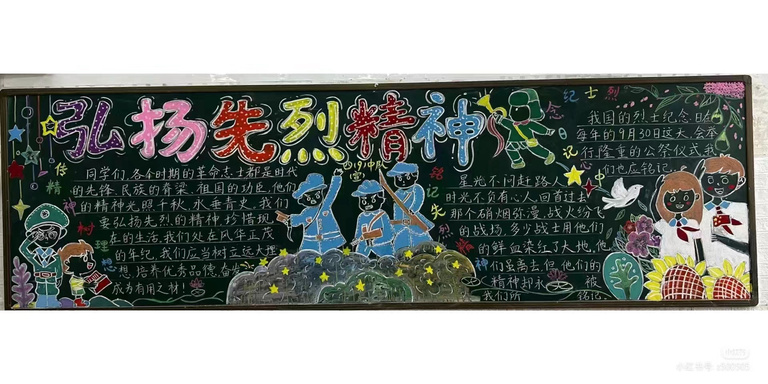 弘扬先烈精神
同学们,各个时期的革命志士都是时代
的先锋、民族的脊梁、祖国的功臣,他们
的精神光照千秋,永垂青史。我们
要弘扬先烈的精神,珍惜现
在的生活,我们处在风华正茂
的年纪,我们应当树立远大理
想,培养优秀品德,奋发
成为有用之材!
传
精
神
树
理
想
四(9)中队
(宣)
铭
记
先
烈
精
神
星光不问赶路人
时光不负有心人,回首过去
那个硝烟弥漫,战火纷飞
的战场,多少战士用他们
的鲜血染红了大地,他
们虽离去,但他们的
精神却永 被
我们所 铭记。
烈士纪念日
我国的烈士纪念日在
每年的9月30日这天,会举
行隆重的公祭仪式,我
们也应铭记
记
心
中
小红书